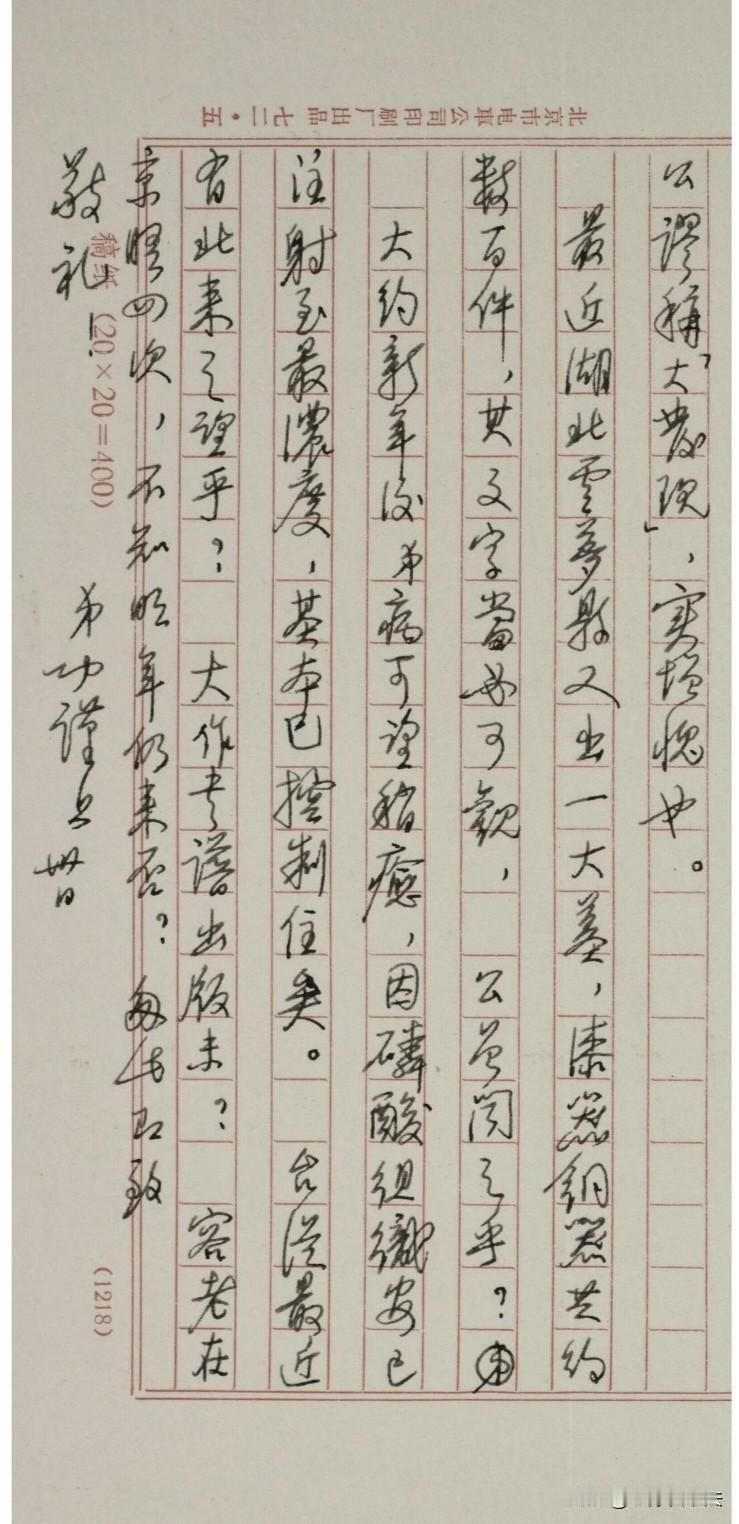 公謬稱「大發現」，實增愧也。
最近湖北雲夢縣又出一大墓，漆器銅器共約
數百件，其文字當必可觀，公曾閱之乎？
大約新年後弟病可望稍癒，因磷酸組織安已
注射至最濃度，基本已控制住矣。台從最近
有北來之望乎？大作書譜出版未？容老在
京暌四次，不知明年仍來否？匆此即致
敬礼！
弟功謹上卅日
北京市电车公司印刷厂出品 七二·五
稿纸（20×20=400）
（1218）